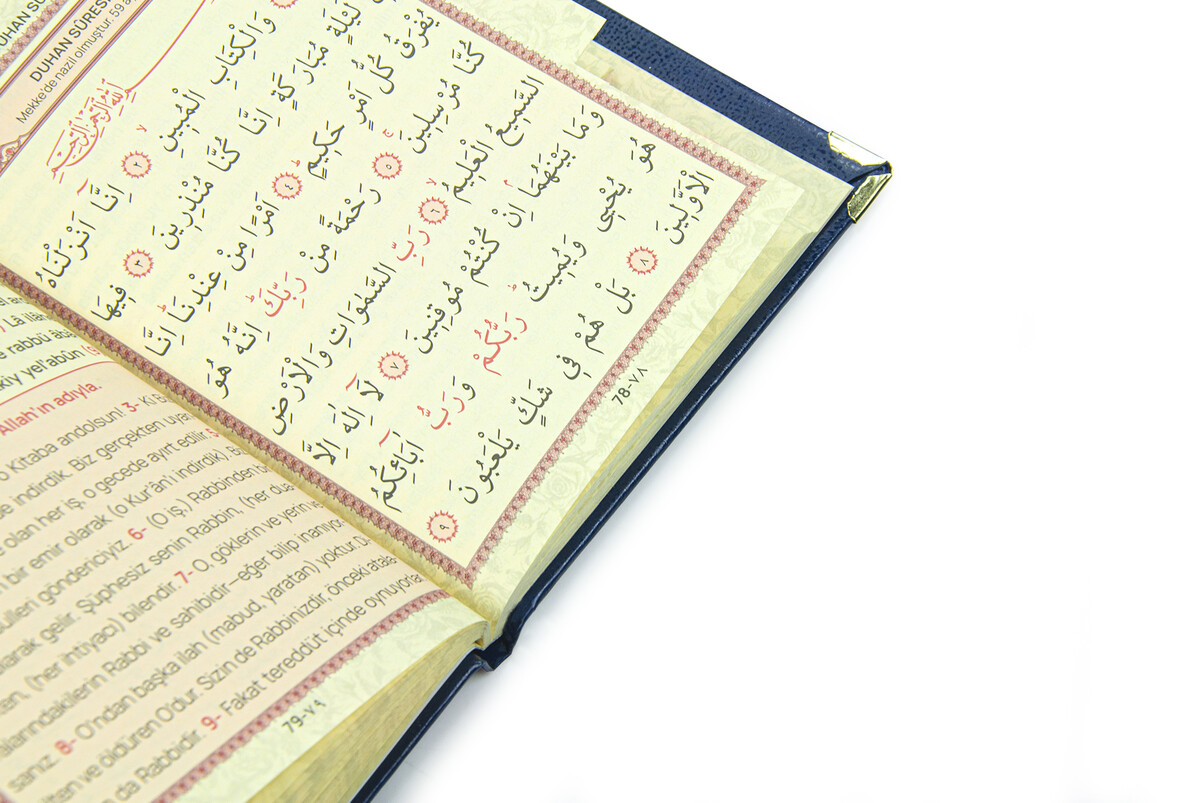 DUHAN SÛRESİ
Mekke'de nazil olmuştur. 59
بِسْمِ اللّٰهِ الرَّحْمٰنِ الرَّحِيمِ
وَالْكِتَابِ الْمُبِينِۙ ﴿٢﴾ اِنَّٓا اَنْزَلْنَاهُ
لَيْلَةٍ مُبَارَكَةٍ اِنَّا كُنَّا مُنْذِرِينَ ﴿٣﴾ فِيهَا
يُفْرَقُ كُلُّ اَمْرٍ حَكِيمٍۜ ﴿٤﴾ اَمْرًا مِنْ عِنْدِنَاۜ اِنَّا
كُنَّا مُرْسِلِينَۚ ﴿٥﴾ رَحْمَةً مِنْ رَبِّكَۜ اِنَّهُ هُوَ
السَّمِيعُ الْعَلِيمُۙ ﴿٦﴾ رَبِّ السَّمٰوَاتِ وَالْاَرْضِ
وَمَا بَيْنَهُمَاۢ اِنْ كُنْتُمْ مُوقِنِينَ ﴿٧﴾ لَٓا اِلٰهَ اِلَّا
هُوَ يُحْيِي وَيُمِيتُۜ رَبُّكُمْ وَرَبُّ اٰبَٓائِكُمُ
الْاَوَّلِينَ ﴿٨﴾ بَلْ هُمْ فِي شَكٍّ يَلْعَبُونَ ﴿٩﴾
78-٧٨
rabbü
yel'abûn
Allah'ın adıyla.
Kitaba andolsun! 3-
indirdik. Biz gerçekten
olan her iş, o gecede ayırt edilir.
bir emir olarak (o Kur'ân'ı indirdik).
göndericiyiz. 6- (O iş,) Rabbinden
gelir. Şüphesiz senin Rabbin, (her
(her ihtiyacı) bilendir. 7- O, göklerin ve yerin
Rabbi ve sahibidir—eğer bilip
8- O'ndan başka ilah (mabud, yaratan) yoktur.
ve öldüren O'dur. Sizin de Rabbinizdir, önceki
da Rabbidir. 9- Fakat tereddüt içinde oynuyorlar
79-٧٩